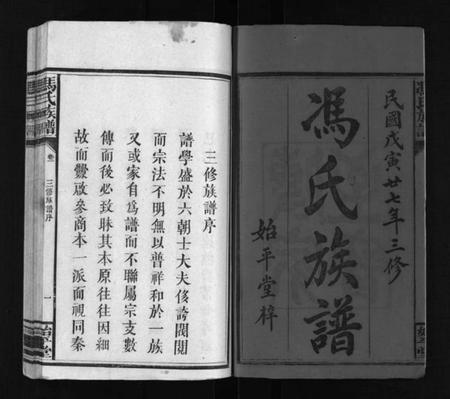 民國戊寅廿七年三修
馮氏族譜
始平堂梓
三修族譜序
譜學盛於六朝士大夫侈誇閥閱
而宗法不明無以普祥和於一族
又或家自為譜而不聯屬宗支數
傳而後必致昧其本原往往因細
故而釁啟參商本一派而視同秦
馮氏族譜
卷一
三修族譜序
一
始平堂